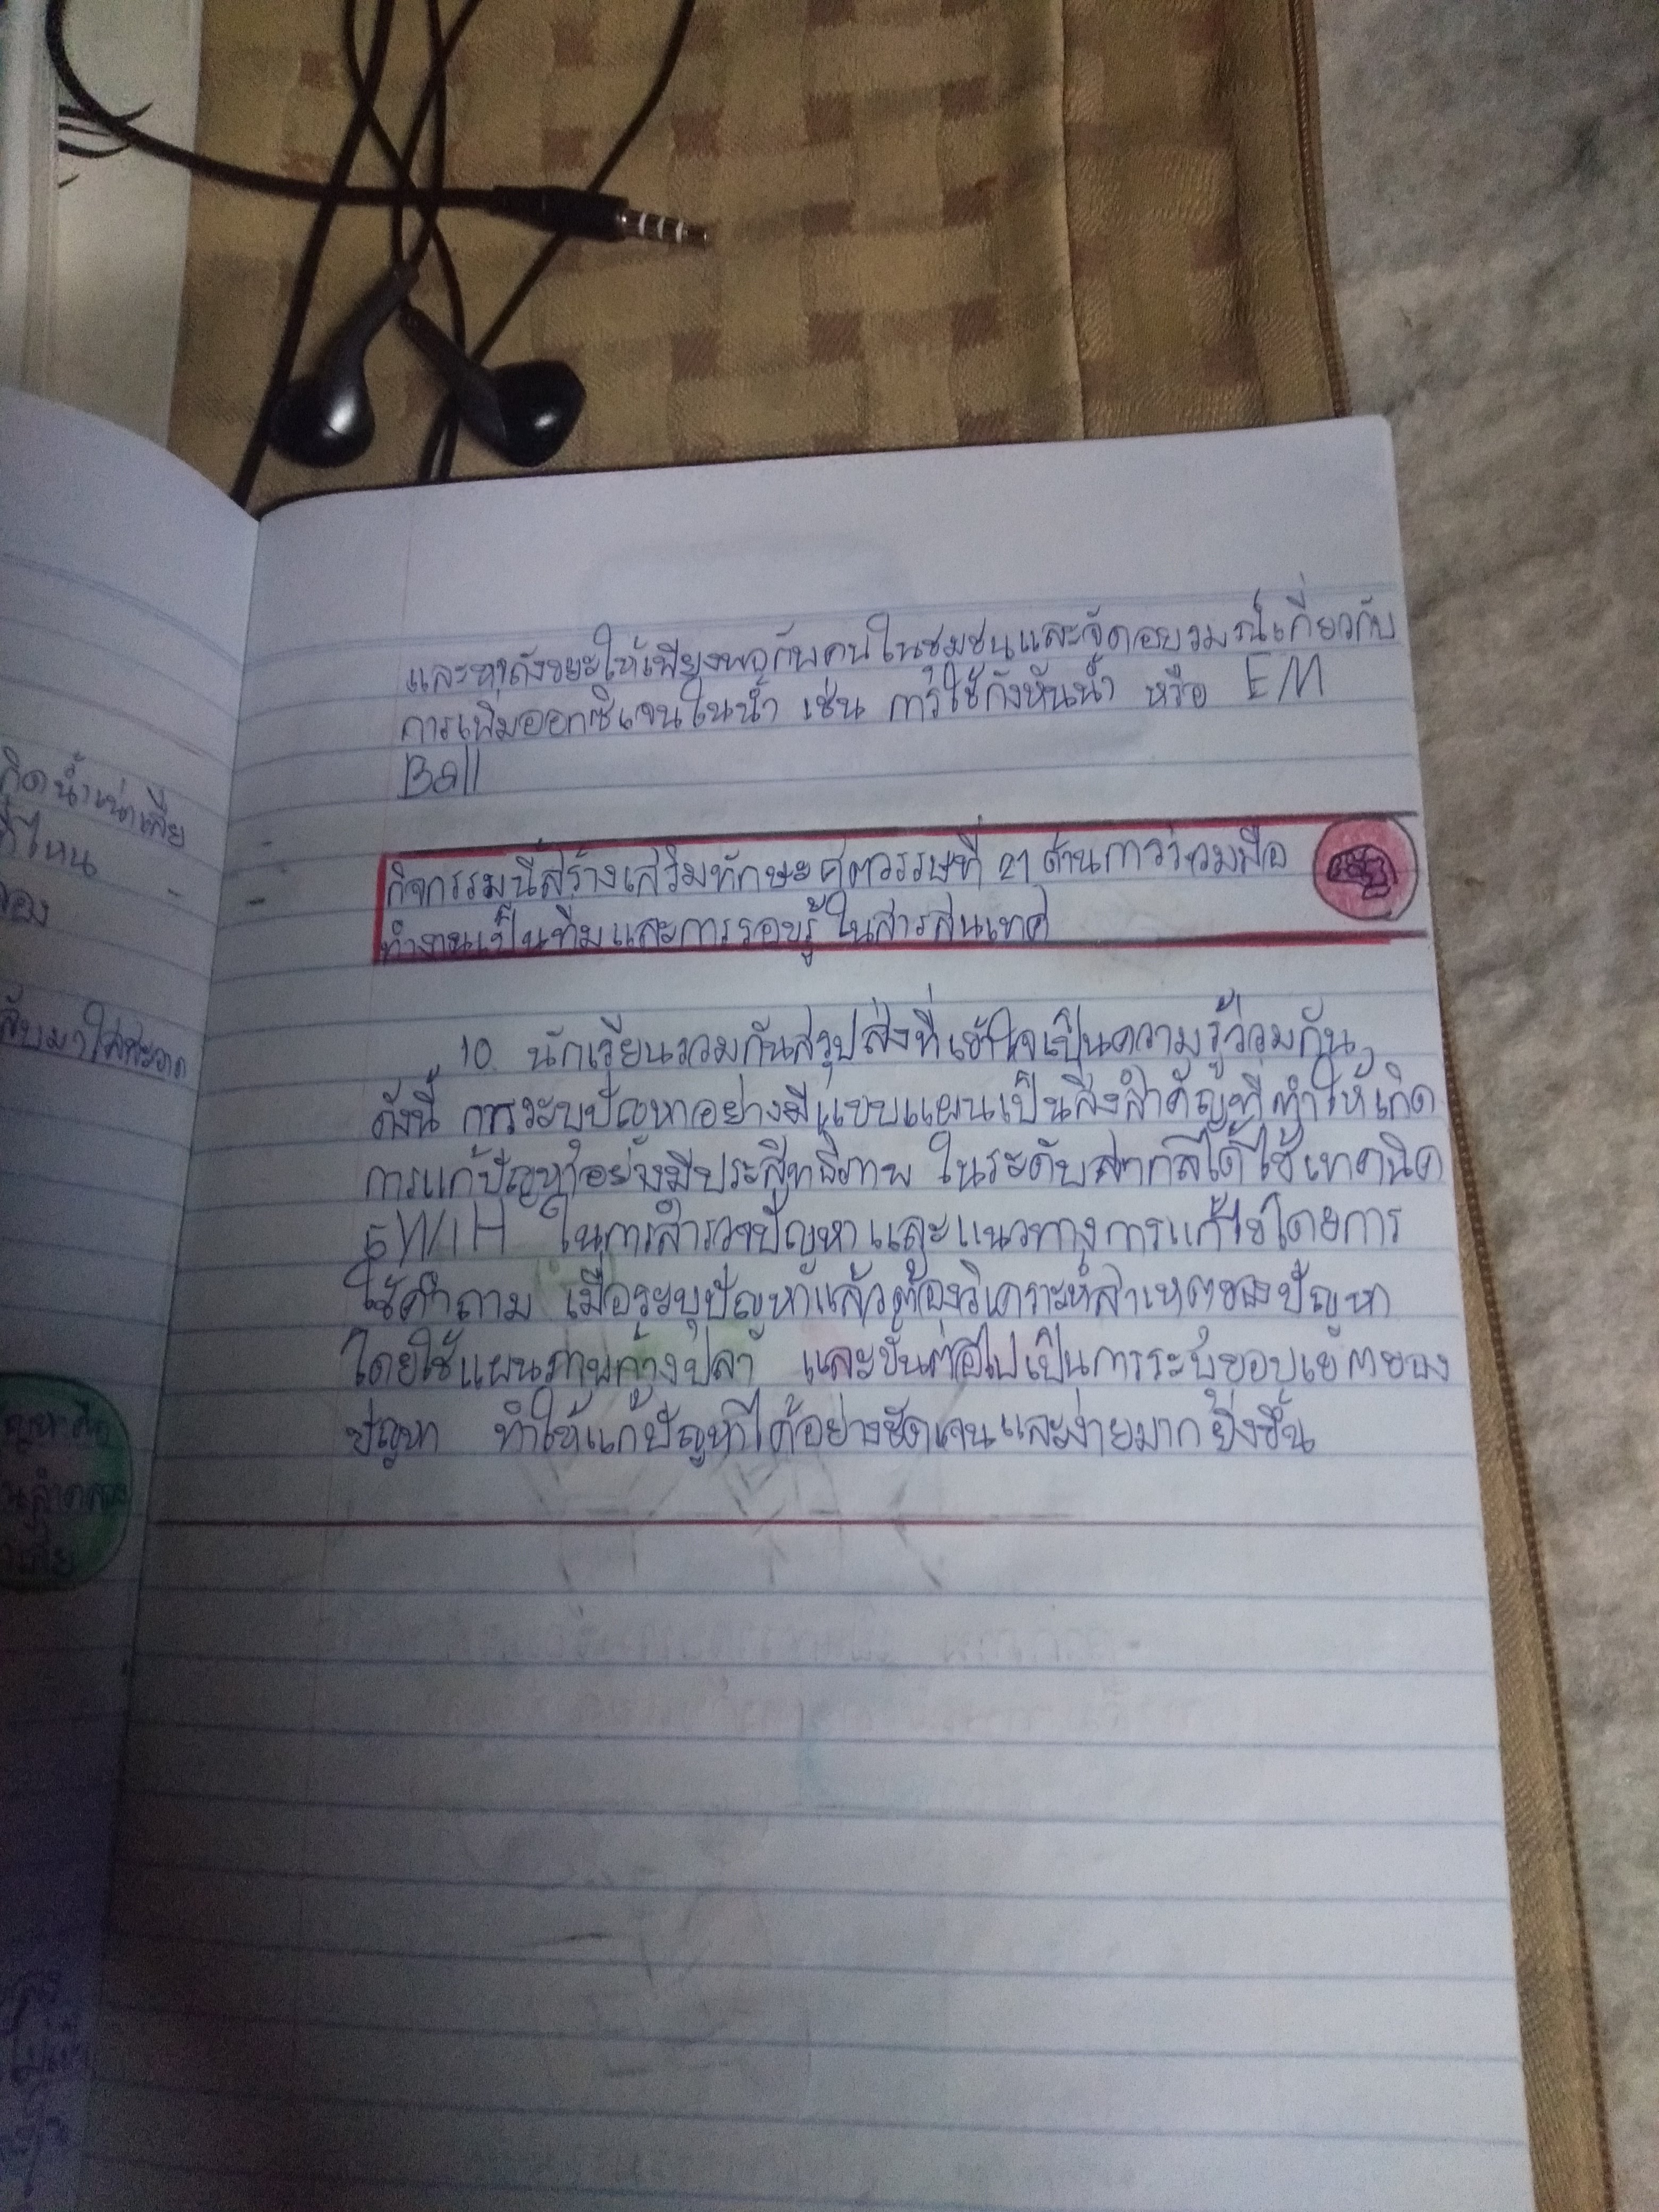 และหาถังขยะให้เพียงพอกับคนในชุมชนและจัดอบรมณ์เกี่ยวกับ
การเพิ่มออกซิเจนในน้ำ เช่น การใช้กังหันน้ำ หรือ EM
Ball
กิจกรรมนี้สร้างเสริมทักษะศตวรรษที่ 21 ด้านการร่วมมือ
ทำงานเป็นทีมและการรอบรู้ในสารสนเทศ
10. นักเรียนรวมกันสรุปสิ่งที่เข้าใจเป็นความรู้ร่วมกัน
ดังนี้ การระบุปัญหาอย่างมีแบบแผนเป็นสิ่งสำคัญที่ทำให้เกิด
การแก้ปัญหาอย่างมีประสิทธิภาพ ในระดับสากลได้ใช้เทคนิค
5W1H ในการสำรวจปัญหาและแนวทางการแก้ไขโดยการ
ใช้คำถาม เมื่อระบุปัญหาแล้วต้องวิเคราะห์สาเหตุของปัญหา
โดยใช้แผนภาพก้างปลา และขั้นต่อไปเป็นการระบุขอบเขตของ
ปัญหา ทำให้แก้ปัญหาได้อย่างชัดเจนและง่ายมากยิ่งขึ้น
กิดน้ำเน่าเสีย
ที่ไหน
ของ